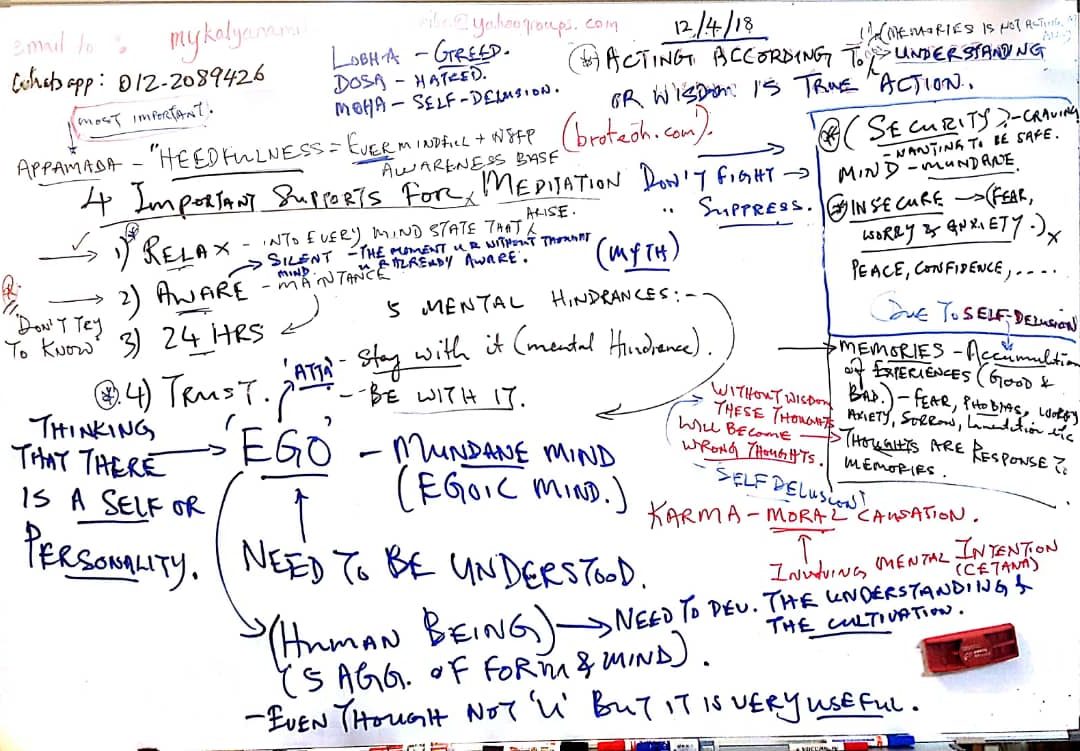 Email to : mykalyanami @yahoogroups.com
Whatsapp: 012-2089426
12/4/18
LOBHA - GREED.
DOSA - HATRED.
MOHA - SELF-DELUSION.
(MEMORIES IS NOT ACTING
(*) ACTING ACCORDING TO UNDERSTANDING
OR WISDOM IS TRUE ACTION.
MOST IMPORTANT.
APPAMADA - "HEEDFULNESS = EVER MINDFULL +
AWARENESS BASE
(broteoh.com).
4 IMPORTANT SUPPORTS FOR MEDITATION
DON'T FIGHT →
" SUPPRESS.
(MYTH)
* 1) RELAX - INTO EVERY MIND STATE THAT ARISE.
SILENT MIND - THE MOMENT U R WITHOUT THOUGHT
U R ALREADY AWARE.
→ 2) AWARE - MAINTANCE
"DON'T TRY
TO KNOW"
3) 24 HRS
* 4) TRUST.
5 MENTAL HINDRANCES:-
- Stay with it (mental Hindrance).
- BE WITH IT.
'ATTA'
THINKING
THAT THERE →
IS A SELF OR
PERSONALITY.
'EGO' - MUNDANE MIND
(EGOIC MIND.)
NEED TO BE UNDERSTOOD.
(HUMAN BEING) → NEED TO DEV. THE UNDERSTANDING &
THE CULTIVATION.
(5 AGG. OF FORM & MIND).
- EVEN THOUGH NOT 'U' BUT IT IS VERY USEFUL.
* (SECURITY? - CRAVING
- WANTING TO BE SAFE.
MIND - MUNDANE.
* INSECURE → (FEAR,
WORRY & ANXIETY.) x
PEACE, CONFIDENCE, ....
(DUE TO SELF-DELUSION
→ MEMORIES - Accumulation
of EXPERIENCES (GOOD &
BAD.) - FEAR, PHOBIAS, WORRY
ANXIETY, SORROW, Lamentation etc
→ THOUGHTS ARE RESPONSE TO
MEMORIES.
WITHOUT WISDOM
THESE THOUGHTS
WILL BECOME
WRONG THOUGHTS.
- SELF DELUSION!
KARMA - MORAL CAUSATION.
INVOLVING MENTAL INTENTION
(CETANA)